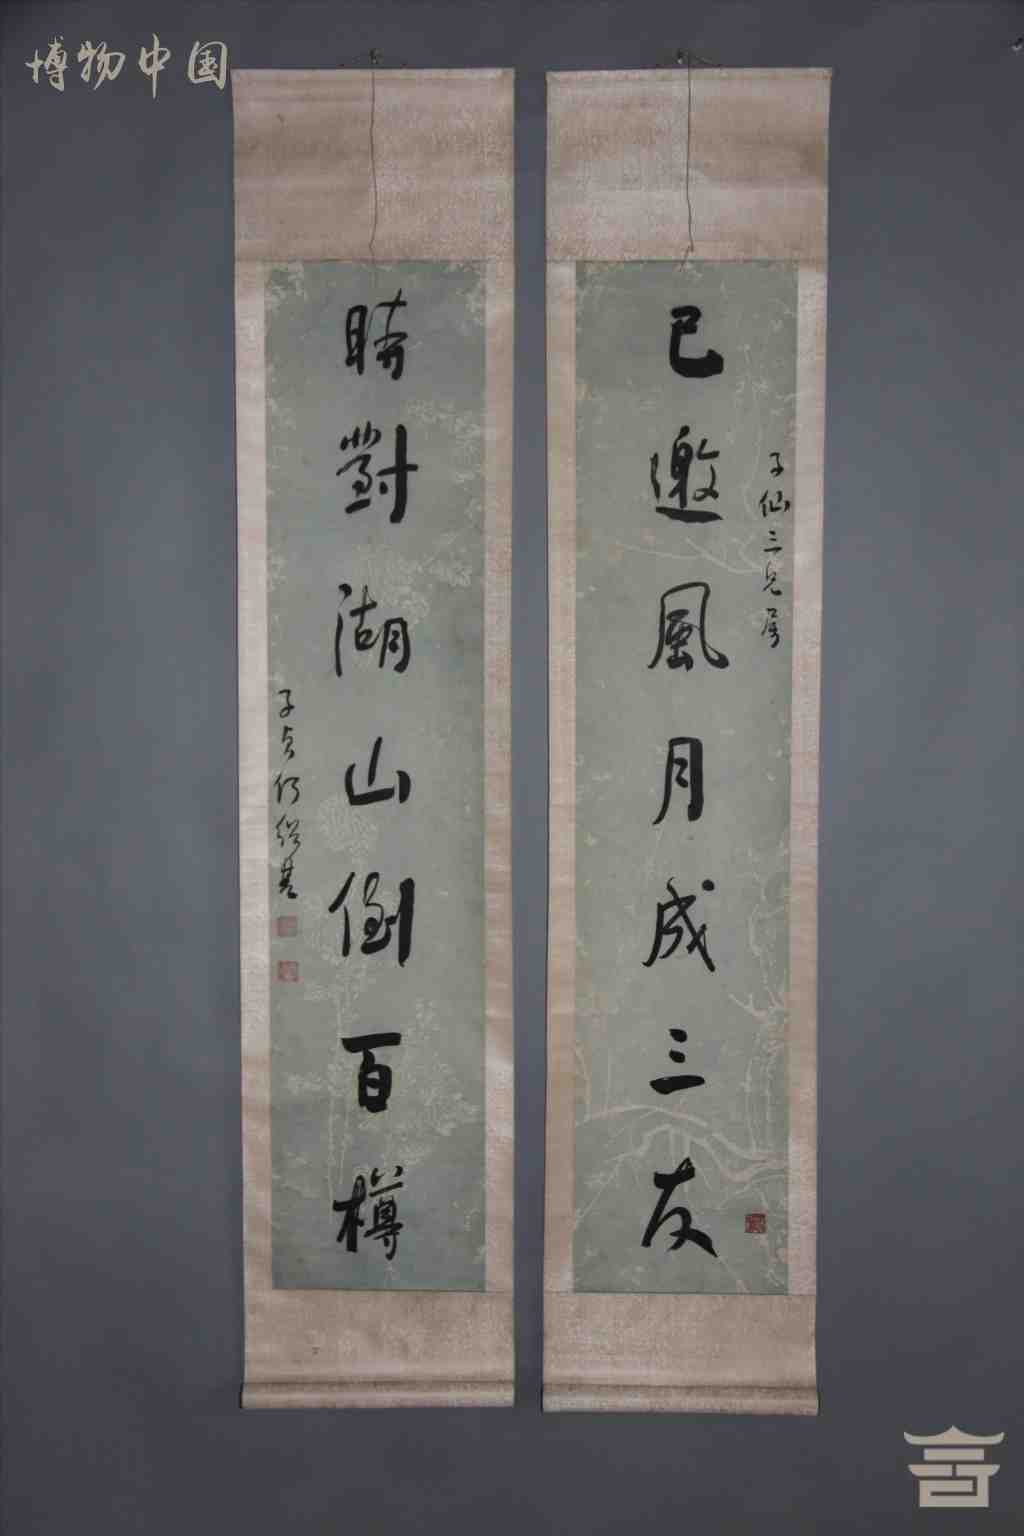 博物中国
已邀風月成三友
子仙三兄屬
晴對湖山倒百樽
子貞何紹基